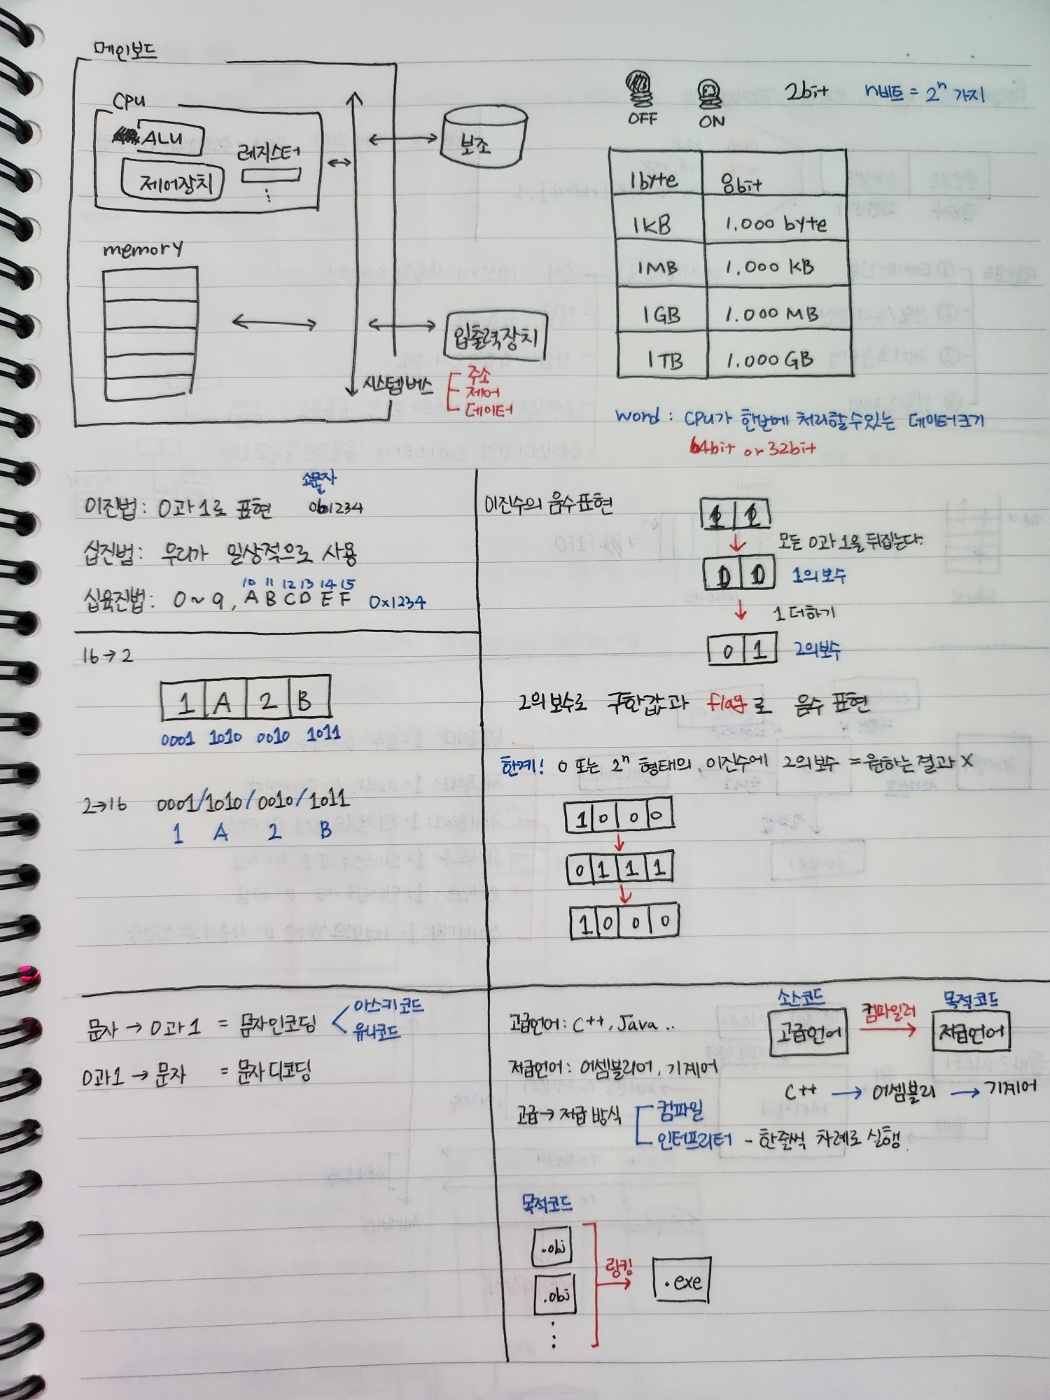 메인보드
CPU
ALU
제어장치
레지스터
memory
보조
입출력장치
시스템버스
주소
제어
데이터
OFF
ON
2bit
n비트 = 2ⁿ 가지
1byte 8bit
1KB 1.000 byte
1MB 1.000 KB
1GB 1.000 MB
1TB 1.000 GB
word : CPU가 한번에 처리할수있는 데이터크기
64bit or 32bit
소문자
이진법 : 0과1로 표현 0b1234
십진법 : 우리가 일상적으로 사용
10 11 12 13 14 15
십육진법 : 0 ~ 9, A B C D E F 0x1234
16→2
1 A 2 B
0001 1010 0010 1011
2→16 0001/1010/0010/1011
1 A 2 B
이진수의 음수표현
1 1
모든 0과 1을 뒤집는다.
0 0 1의보수
1 더하기
0 1 2의보수
2의보수로 구한값과 flag로 음수 표현
한계! 0 또는 2ⁿ 형태의 이진수에 2의보수 = 원하는 결과 X
1 0 0 0
0 1 1 1
1 0 0 0
문자 → 0과1 = 문자인코딩
아스키코드
유니코드
0과1 → 문자 = 문자디코딩
고급언어 : C++, Java ..
저급언어 : 어셈블리어, 기계어
고급→저급 방식
컴파일
인터프리터 - 한줄씩 차례로 실행
소스코드
고급언어
컴파일러
목적코드
저급언어
C++ → 어셈블리 → 기계어
목적코드
.obj
.obj
링킹
.exe